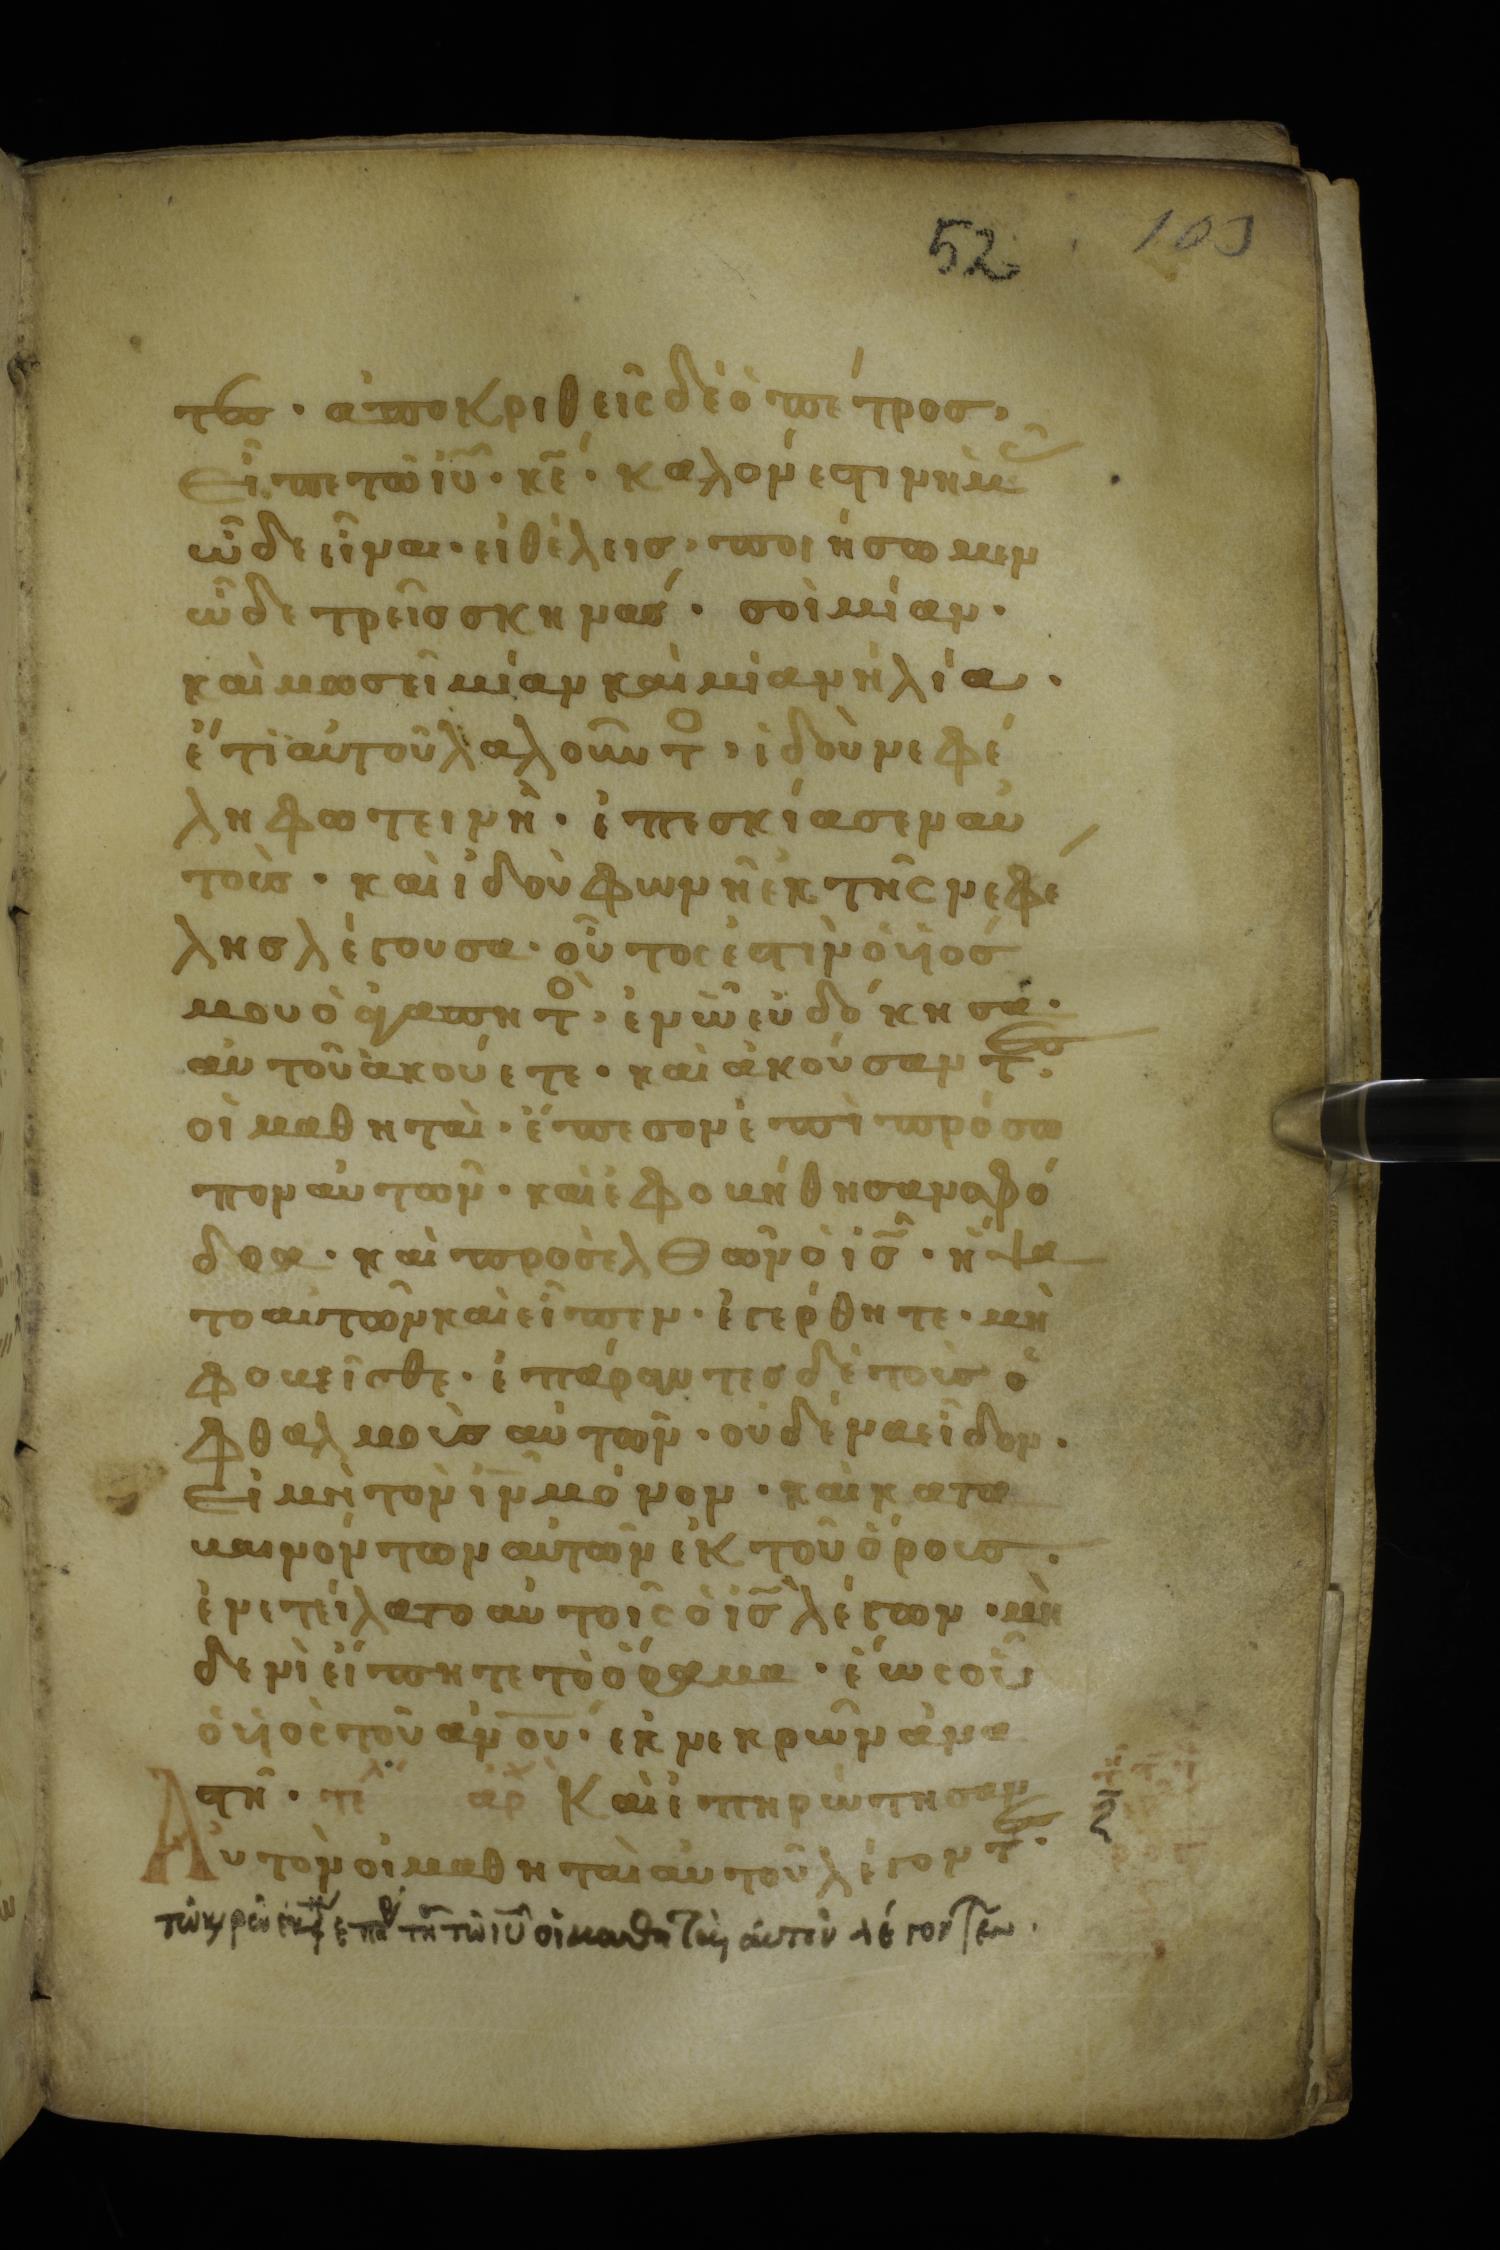 52 103
τες · ἀποκριθεὶς δὲ ὁ πέτρος,
εἶπε τῶ ἰῦ · κε̄ · καλόν ἐστιν ἡμᾶς
ὧδε εἶναι · εἰ θέλεις, ποιήσωμεν
ὧδε τρεῖς σκηνάς · σοὶ μίαν ·
καὶ μωσεῖ μίαν καὶ μίαν ἠλία ·
ἔτι αὐτοῦ λαλοῦντο, ἰδοὺ νεφέ
λη φωτεινὴ · ἐπεσκίασεν αὐ
τοὺς · καὶ ἰδοὺ φωνὴ ἐκ τῆς νεφέ
λης λέγουσα · οὗτος ἐστιν ὁ ὑιός
μου ὁ ἀγαπητὸ, ἐν ὧ εὐδόκησα ·
αὐτοῦ ἀκούετε · καὶ ἀκούσαντες
οἱ μαθηταὶ · ἔπεσον ἐπὶ πρόσω
πον αὐτῶν · καὶ ἐφοβήθησαν σφό
δρα · καὶ προσελθὼν ὁ ἰς̄ · ἥψα
το αὐτῶν καὶ εἶπεν · ἐγέρθητε · μὴ
φοβεῖσθε · ἐπάραντες δὲ τοὺς ὀ
φθαλμοὺς αὐτῶν · οὐδένα εἶδον ·
εἰ μὴ τὸν ἰν̄ μόνον · καὶ κατα
βαινόντων αὐτῶν ἐκ τοῦ ὄρους ·
ἐνετείλατο αὐτοῖς ὁ ἰς̄ λέγων · μη
δενὶ εἴπητε τὸ ὅραμα · ἕως οὗ
ὁ ὑιὸς τοῦ ἀν̄ου · ἐκ νεκρῶν ἀνα
στῆ · τελ ἀρχ Καὶ ἐπηρώτησαν
Αὐτὸν οἱ μαθηταὶ αὐτοῦ λέγοντες ·
τῶ ἰῦ οἱ μαθηταὶ αὐτοῦ λέγοντες ·